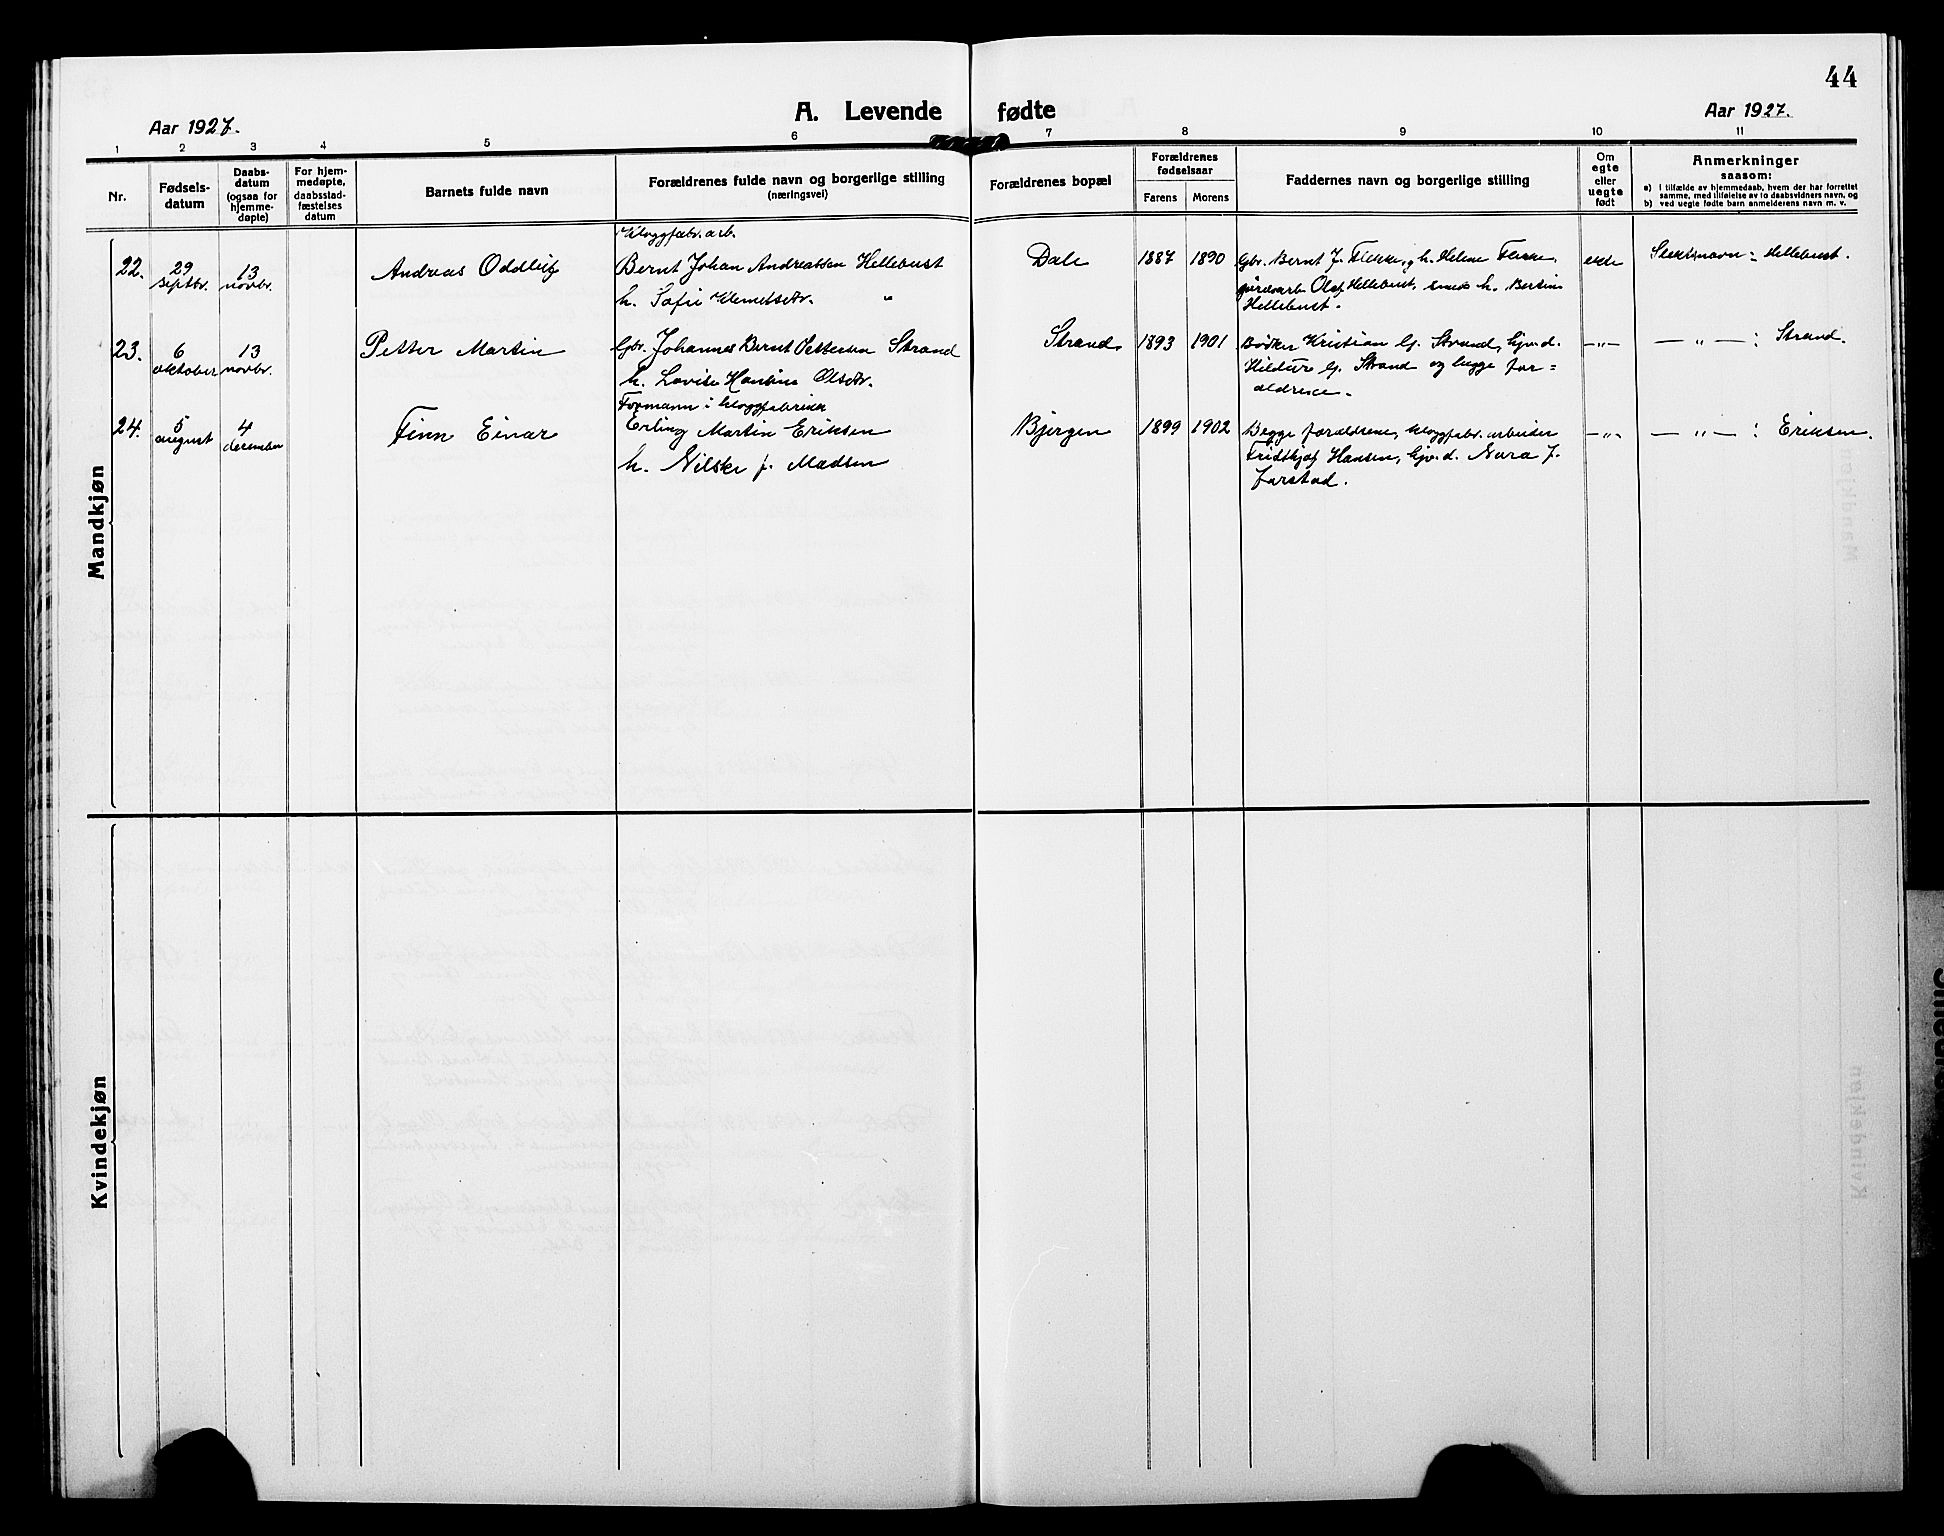 44
A. Levende fødte
Aar 1927.
Aar 1927.
1 2 3 4 5 6 7 8 9 10 11
Nr.
Fødsels-
datum
Daabs-
datum
(ogsaa for
hjemme-
døpte)
For hjem-
medøpte,
daabsstad-
fæstelses
datum
Barnets fulde navn
Forældrenes fulde navn og borgerlige stilling
(næringsvei)
Forældrenes bopæl
Forældrenes
fødselsaar
Farens Morens
Faddernes navn og borgerlige stilling
Om
egte
eller
uegte
født
Anmerkninger
saasom:
a) i tilfælde av hjemmedaab, hvem der har forrettet
samme, med tilføielse av to daabsvidners navn, og
b) ved uegte fødte barn anmelderens navn m. v.
Mandkjøn
22.
29
septbr.
13
novbr.
Andreas Oddleiv
Kloggfabr. arb.
Bernt Johan Andreassen Hellebust
h. Sofie Klemetsdtr. "
Dale
1887 1890
Gbr. Bernt J. Flekke, g h. Helene Flekke,
Olaf Hellebust, h.
Hellebust.
ekte
Slektsnavn: Hellebust.
23.
6
oktober
13
novbr.
Petter Martin
Gbr. Johannes Bernt Pettersen Strand
h. Lovise Hansine Olsdtr.
Strand
1893 1901
Bødker Kristian G. Strand, hjv. d.
G. Strand og begge for=
ældrene.
—"—
— " — : Strand.
24.
5
august
4
december
Finn Einar
Formann i kloggfabrikk
Erling Martin Eriksen
h. Nilske f. Madsen
Bjergen
1899 1902
Begge forældrene, kloggfabr. arbeider
Fridthjof Hansen, hjv. d. Nora J.
Farstad.
—"—
— " — : Eriksen.
Kvindekjøn